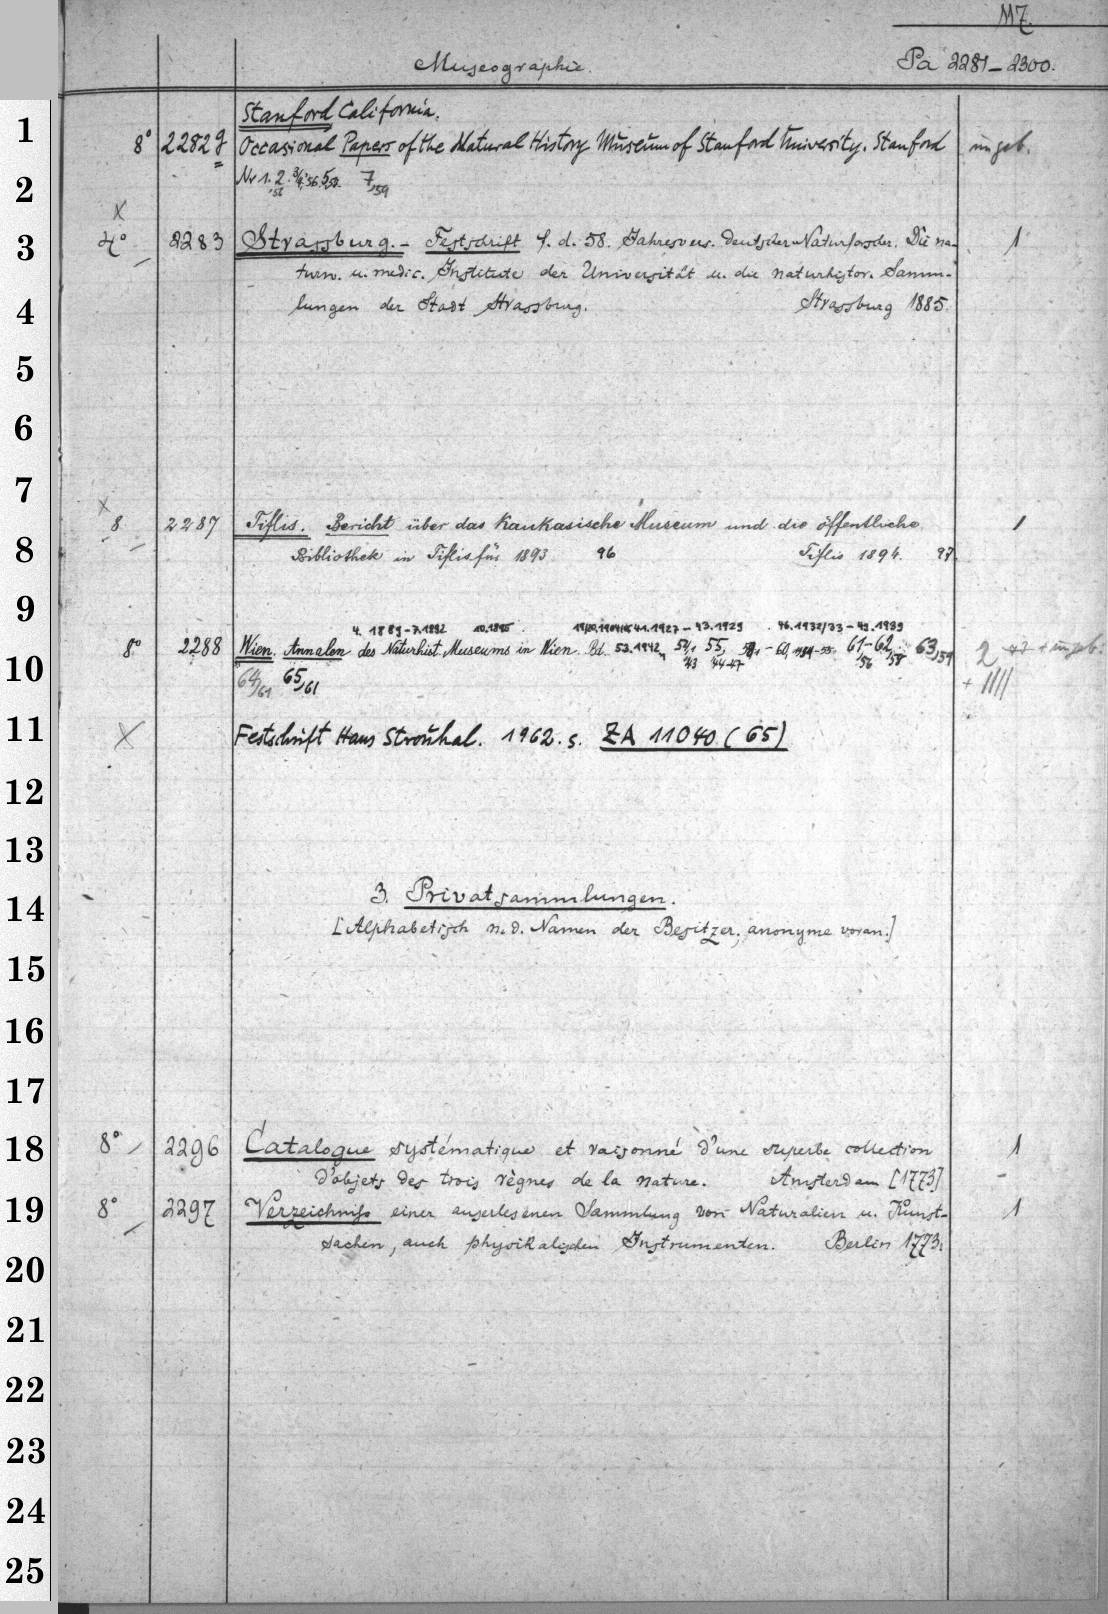 MZ.
Museographie. Pa 2281–2300.
1
Stanford California.
8° 2282g Occasional Papers of the Natural History Museum of Stanford University. Stanford ungeb.
2
Nr 1. 2,56 3/4,56 5,58. 7,59
X
3
4° 2283 Strassburg. – Festschrift f. d. 58. Jahresvers. deutscher Naturforscher. Die na- 1
turw. u. medic. Institute der Universität u. die naturhistor. Samm-
4
lungen der Stadt Strassburg. Strassburg 1885.
5
6
7
X
8 2287 Tiflis. Bericht über das Kaukasische Museum und die öffentliche 1
8
Bibliothek in Tiflis für 1893 96 Tiflis 1894. 97.
9
4. 1889–7.1892 10.1895. 41.1927–43.1929. 46.1932/33–49.1939
8° 2288 Wien. Annalen des Naturhist. Museums in Wien. Bd. 53.1942, 54,1 55, –60, 61–62 63,59 2 + ungeb.
10
'43 '44-47 '56 '58
64/61 65/61 + IIII
11
X Festschrift Hans Strouhal. 1962. s. ZA 11040 (65)
12
13
14
3. Privatsammlungen.
[Alphabetisch n. d. Namen der Besitzer, anonyme voran.]
15
16
17
18
8° 2296 Catalogue systématique et raisonné d'une superbe collection 1
d'objets des trois règnes de la nature. Amsterdam [1773]
19
8° 2297 Verzeichniss einer auserlesenen Sammlung von Naturalien u. Kunst- 1
sachen, auch physikalischen Instrumenten. Berlin 1773.
20
21
22
23
24
25